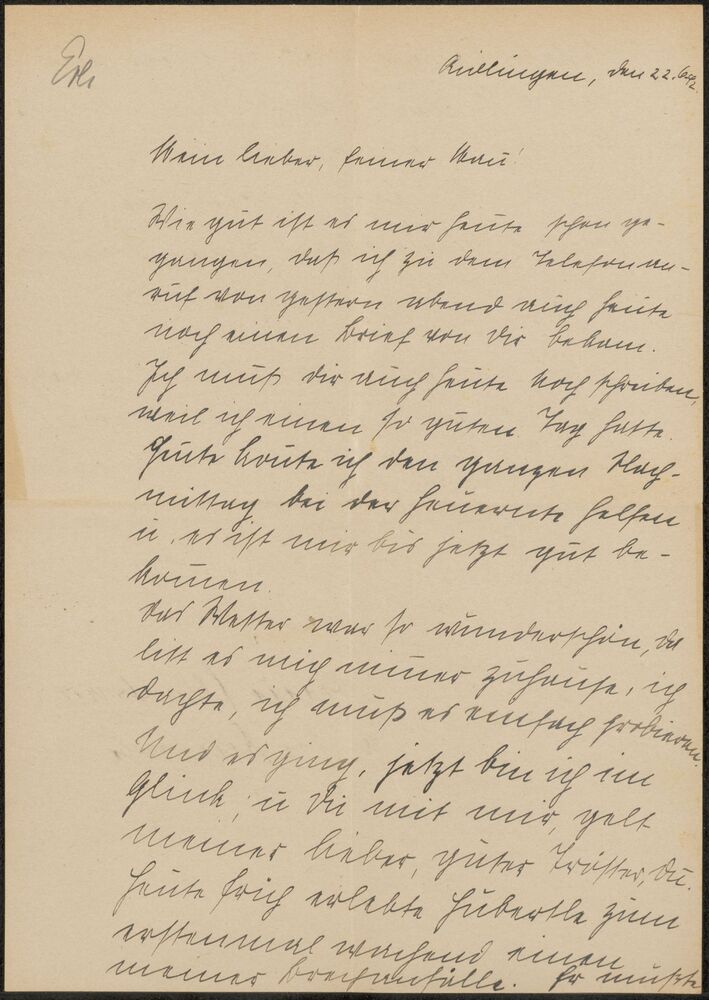 Erl.
Aidlingen, den 22.6.42.
Mein lieber, feiner Mau!
Wie gut ist es mir heute schon ge-
gangen, daß ich zu dem Telefonan-
ruf von gestern abend auch heute
noch einen Brief von Dir bekam.
Ich muß Dir auch heute noch schreiben,
weil ich einen so guten Tag hatte.
Heute konnte ich den ganzen Nach-
mittag bei der Heuernte helfen
u. es ist mir bis jetzt gut be-
kommen.
Das Wetter war so wunderschön, da
litt es mich nimmer zuhause, ich
dachte, ich muß es einfach probieren.
Und es ging, jetzt bin ich im
Glück, u. Du mit mir, gelt
meiner lieber, guter Tröster, Du.
Heute früh erlebte Hubertle zum
erstenmal wachend einen
meiner Brechanfälle. Er mußte